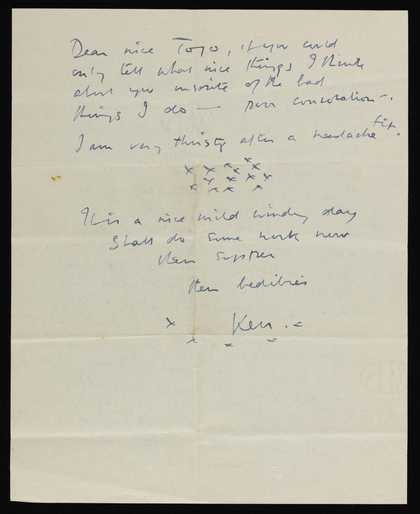 Dear nice Togo, if you could
only tell what nice things I think
about you inspite of the bad
things I do — poor consolation -.
I am very thirsty after a headache fit.
x x x x x
x x x x
x x x x
It is a nice mild windy day
Shall do some work now
then suppen
then bedibies
x Ken. =